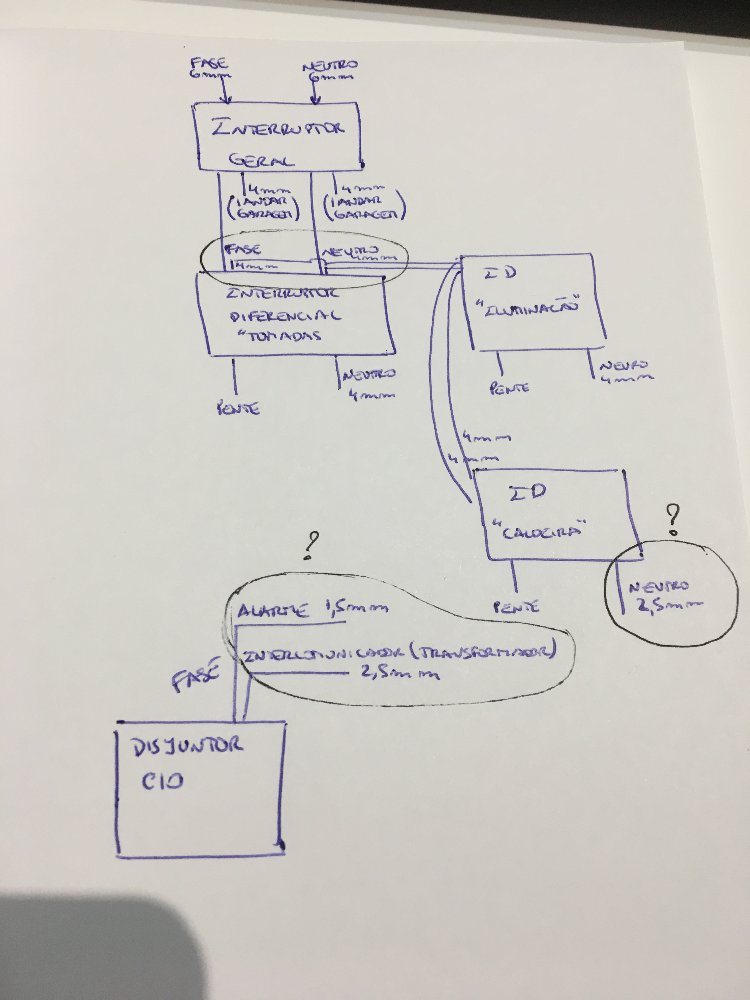 FASE
6mm
NEUTRO
6mm
INTERRUPTOR
GERAL
4mm
(1 ANDAR
GARAGEM)
4mm
(1 ANDAR
GARAGEM)
FASE
4mm
NEUTRO
4mm
INTERRUPTOR
DIFERENCIAL
"TOMADAS
PENTE
NEUTRO
4mm
ID
"ILUMINAÇÃO"
PENTE
NEURO
4mm
4mm
4mm
ID
"CALDEIRA"
PENTE
?
NEUTRO
2,5mm
?
ALARME 1,5mm
INTERCOMUNICADOR (TRANSFORMADOR)
2,5mm
FASE
DISJUNTOR
C10